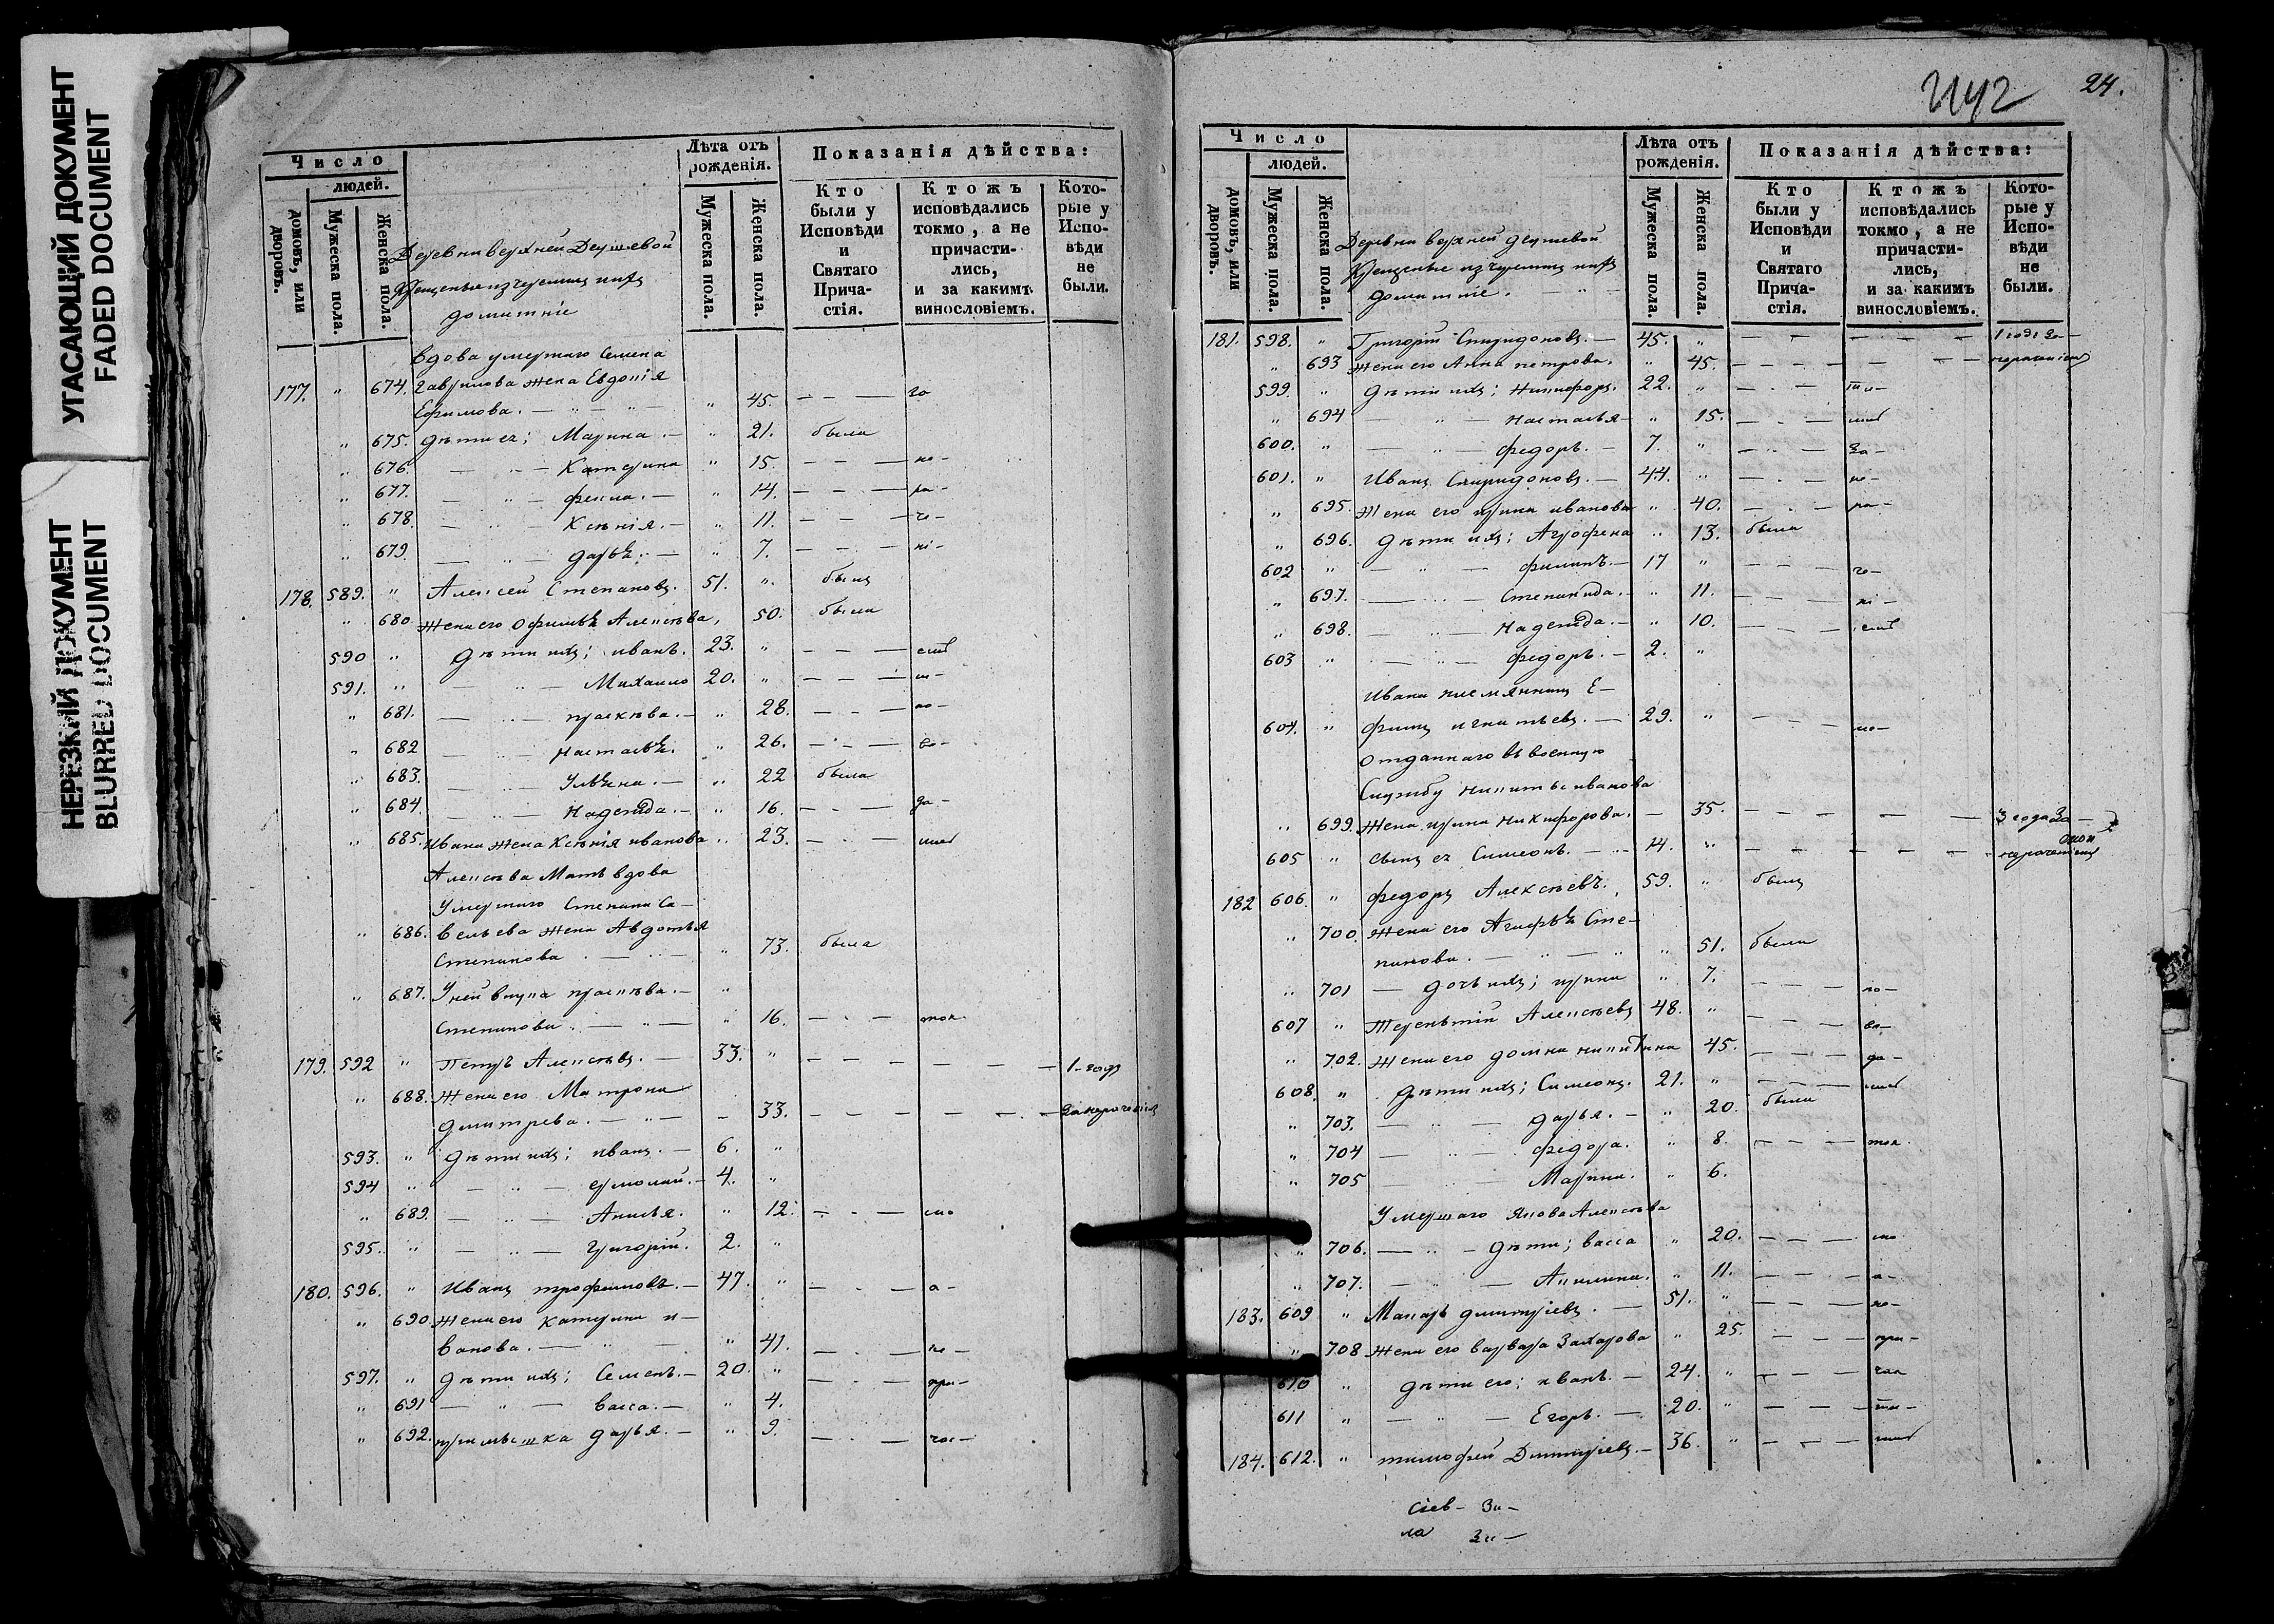 УГАСАЮЩИЙ ДОКУМЕНТ
FADED DOCUMENT
НЕРЕЗКИЙ ДОКУМЕНТ
BLURRED DOCUMENT
Число
людей.
домовъ, или дворовъ.
Мужеска пола.
Женска пола.
Лѣта отъ рожденія.
Мужеска пола.
Женска пола.
Показанія дѣйства:
Кто были у Исповѣди и Святаго Прича-стія.
Ктожъ исповѣдались токмо, а не причасти-лись, и за какимъ винословіемъ.
Кото-рые у Испо-вѣди не были.
Деревни верхней Деушевой
крещеные из черемис и их
домашніе
вдова умершаго Семена
177. " 674. гаврилова жена Евдокія
Ефимова. " 45. го
" 675. дѣти ея; Марина " 21. была
" 676. Катерина " 15. не
" 677. фекла. " 14. ра
" 678. Ксѣнія. " 11. че
" 679. дарья " 7. ні
178. 589. " Алексей Степановъ. 51. " былъ
" 680. жена его Офимья Алексѣва, 50. была
590 " дѣти ихъ; иванъ. 23. "
591. " Михаило 20. "
" 681. прасковва. " 28. по
" 682 настасья. " 26. во
" 683. Ульяна. " 22 была
" 684. надежда. " 16. да
" 685. Ивана жена Ксѣнія иванова " 23.
Алексѣва Мать вдова
Умершаго Степана Са-
" 686. вельева жена Авдотья
Степанова " 73. была
" 687. У ней внука прасковва. "
Степанова " 16.
179. 592 " Петръ Алексѣвъ. 33. " 1-годъ
" 688. Жена его Матрона
дмитрева. 33. за нераченіем
593. " дѣти ихъ; иванъ. 6. "
594 " ермолай. 4. "
" 689. " 12.
595. " григорій. 2. "
180. 596. " Иванъ трофимовъ. 47. " а
" 690. Жена его Катерина и-
ванова. " 41. не
597. " дѣти ихъ; Семенъ. 20. " при
" 691 васса. " 4.
" 692. дарья. " 9. час
24.
Число
людей.
домовъ, или дворовъ.
Мужеска пола.
Женска пола.
Лѣта отъ рожденія.
Мужеска пола.
Женска пола.
Показанія дѣйства:
Кто были у Исповѣди и Святаго Прича-стія.
Ктожъ исповѣдались токмо, а не причасти-лись, и за какимъ винословіемъ.
Кото-рые у Испо-вѣди не были.
Деревни верхней деушевой
Крещеные из черемис и их
домашніе.
181. 598. " Григорій Спиридоновъ. 45. " 1 годъ за
" 693 жена его Анна петрова. " 45. нераченіем
599. " дѣти ихъ; Никифоръ. 22. "
" 694 настасья " 15.
600. " федоръ. 7. " за
601. " Иванъ Спиридоновъ. 44. " не
" 695. Жена его ирина иванова " 40. ра
" 696. дѣти ихъ; Агрофена " 13. была
602 " филипъ. 17 " че
" 697. Степанида. " 11. ні
" 698. надежда. " 10.
603 " федоръ. 2. "
Ивана племянникъ Е-
604. " фимъ игнатьевъ. 29. "
отданнаго въ военную
Службу никиты иванова
" 699. Жена ирина никифорова. 35. 3 года за
605 " сынъ ея Симеонъ. 14. " нераченіем
182 606. " федоръ Алексѣевъ. 59. " былъ
" 700. жена его Сте-
панова. " 51. была
" 701 дочь ихъ; ирина " 7. по
607 " Терентій Алексѣевъ 48. " во
" 702. Жена его домна никитина 45. да
608. " дѣти ихъ; Симеонъ. 21. "
" 703. дарья. " 20. была
" 704 федора. " 8.
" 705 Марина. " 6.
Умершаго Якова Алексѣва
" 706. дѣти; васса " 20.
" 707. Акилина. " 11. а
183. 609 " Макаръ димитріевъ. 51. " не
" 708 жена его варвара Захарова " 25. при
610 " дѣти его; иванъ. 24. " час
611 " Егоръ. 20. "
184. 612. " тимофей Димитріевъ. 36. "